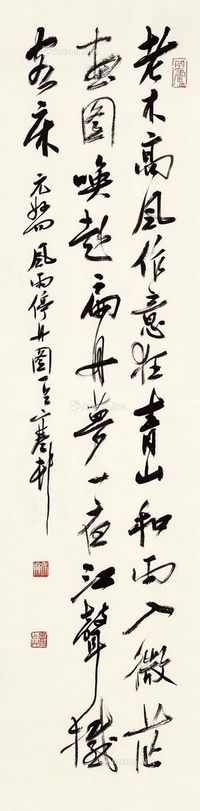 老木高風作意狂青山和雨入微茫
畫圖喚起扁舟夢一夜江聲撼
客床 元好問風雨停舟圖